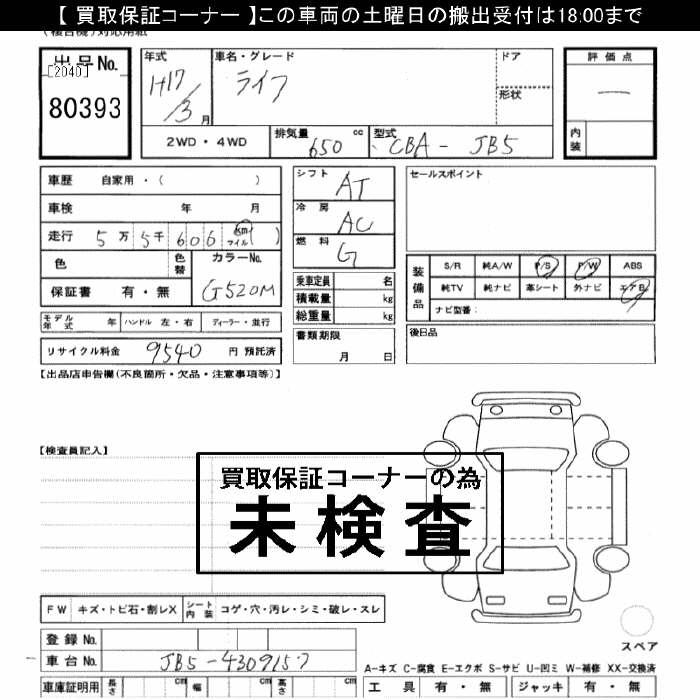 【 買取保証コーナー 】この車両の土曜日の搬出受付は18:00まで
出品No.
[2040]
80393
年式
H17/3月
車名・グレード
ライフ
ドア
形状
評価点
内装
2WD・4WD
排気量 650 cc
型式 CBA-JB5
車歴 自家用・( )
車検 年 月
走行 5万5千606 km マイル ( )
色
色替
カラーNo.
G520M
保証書 有・無
シフト AT
冷房 AC
燃料 G
セールスポイント
乗車定員 名
積載量 kg
総重量 kg
装備品
S/R 純A/W P/S P/W ABS
純TV 純ナビ 革シート 外ナビ エアB
ナビ型番:
モデル年式 年 ハンドル 左・右 ディーラー・並行
リサイクル料金 9540 円 預託済
書類期限
月 日
後日品
【出品店申告欄(不良個所・欠品・注意事項等)】
【検査員記入】
買取保証コーナーの為
未検査
FW キズ・トビ石・割レX シート内装 コゲ・穴・汚レ・シミ・破レ・スレ
登録No.
車台No. JB5-4309157
スペア
A-キズ C-腐食 E-エクボ S-サビ U-凹ミ W-補修 XX-交換済
車庫証明用 長さ cm 幅 cm 高さ cm
工具 有・無 ジャッキ 有・無